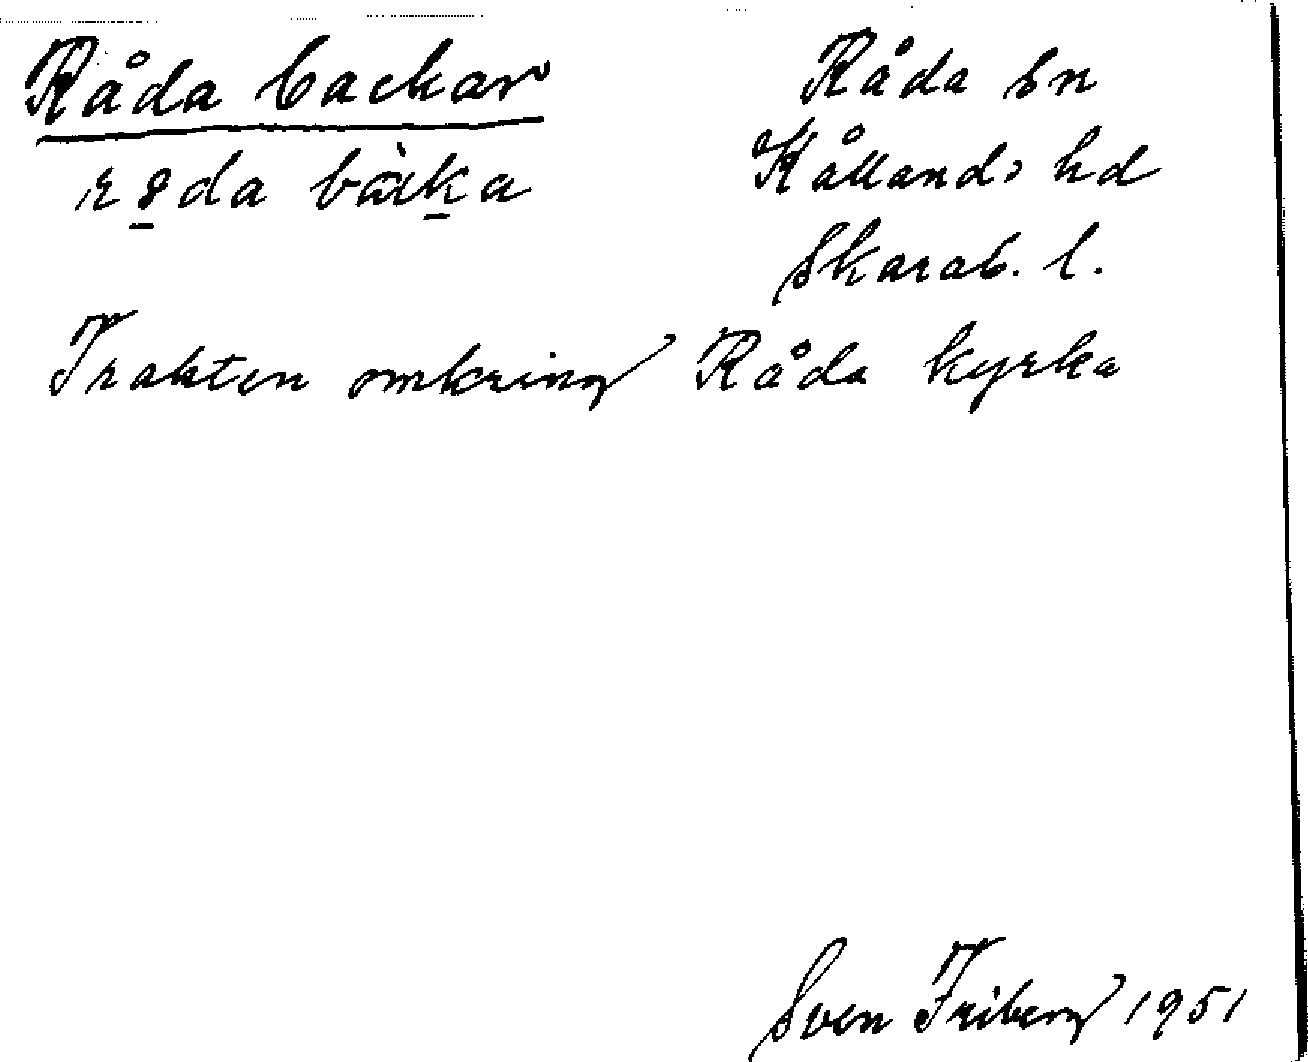 Råda backar
Råda sn
Kållands hd
Skarab. l.
Trakten omkring Råda kyrka
Sven Friberg 1951